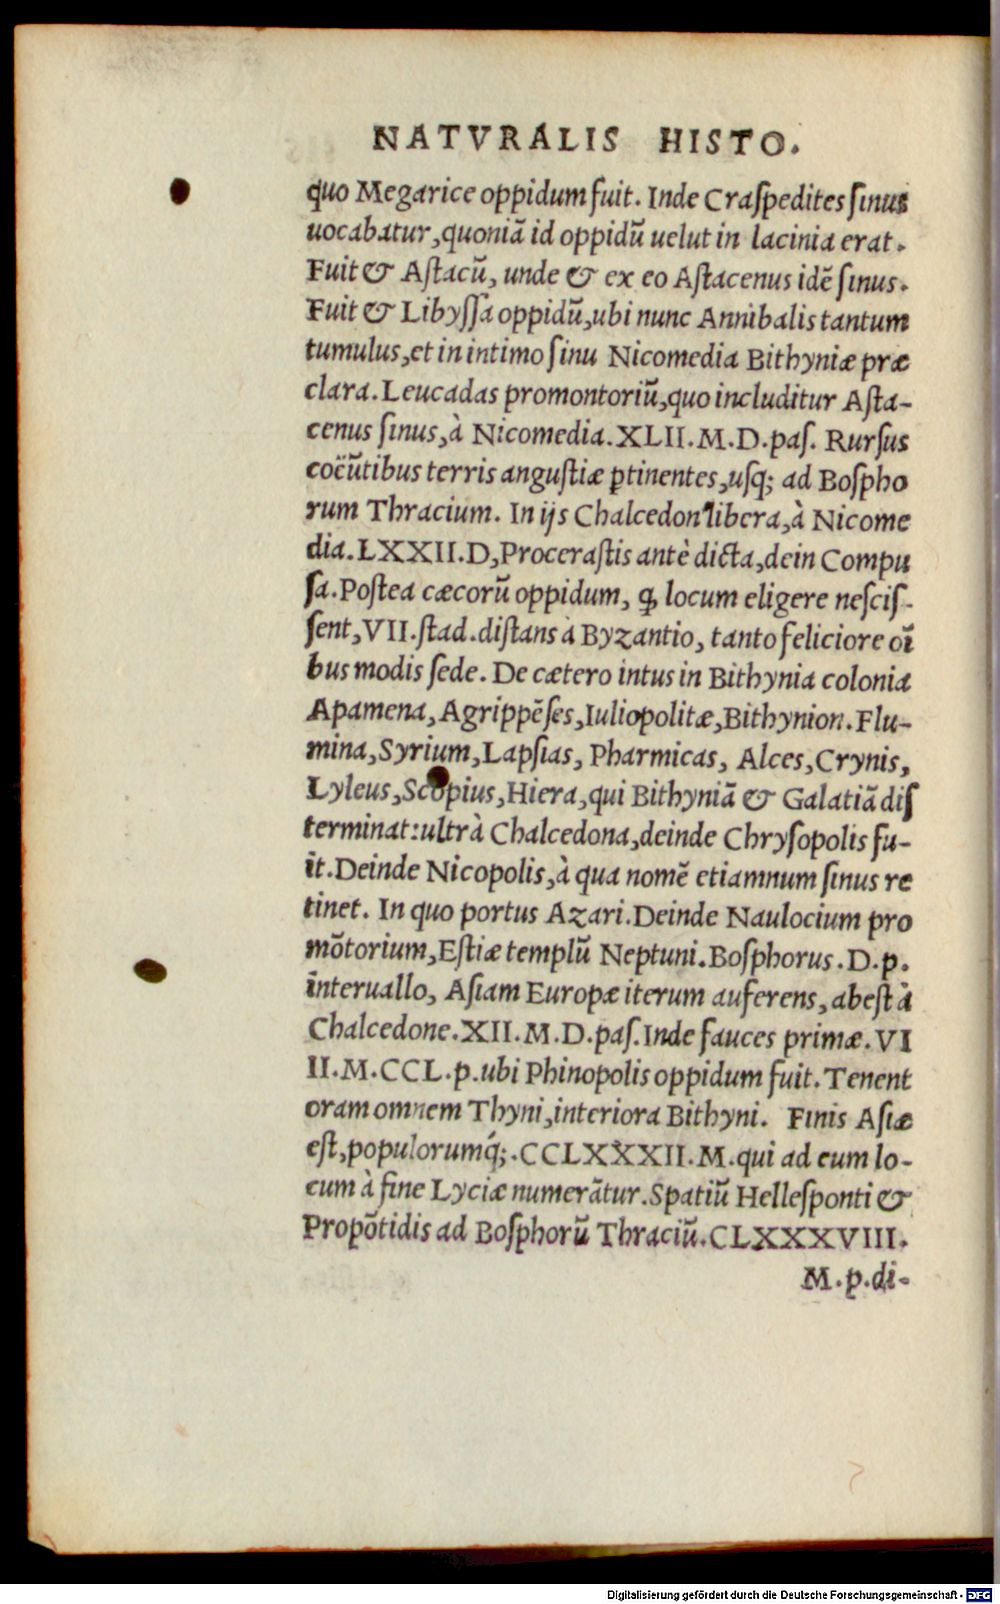 NATVRALIS HISTO.
quo Megarice oppidum fuit. Inde Craſpedites ſinus
uocabatur, quoniã id oppidũ uelut in lacinia erat.
Fuit & Aſtacũ, unde & ex eo Aſtacenus idẽ ſinus.
Fuit & Libyſſa oppidũ, ubi nunc Annibalis tantum
tumulus, et in intimo ſinu Nicomedia Bithyniæ præ
clara. Leucadas promontoriũ, quo includitur Aſta-
cenus ſinus, à Nicomedia. XLII. M. D. paſ. Rurſus
coëũtibus terris anguſtiæ ꝑtinentes, uſq; ad Boſpho
rum Thracium. In ijs Chalcedon libera, à Nicome
dia. LXXII. D, Proceraſtis antè dicta, dein Compu
ſa. Poſtea cæcorũ oppidum, ꝙ locum eligere neſciſ-
ſent, VII. ſtad. diſtans à Byzantio, tanto feliciore oĩ
bus modis ſede. De cætero intus in Bithynia colonia
Apamena, Agrippẽſes, Iuliopolitæ, Bithynion. Flu-
mina, Syrium, Lapſias, Pharmicas, Alces, Crynis,
Lyleus, Scopius, Hiera, qui Bithyniã & Galatiã diſ
terminat: ultrà Chalcedona, deinde Chryſopolis fu-
it. Deinde Nicopolis, à qua nomẽ etiamnum ſinus re
tinet. In quo portus Azari. Deinde Naulocium pro
mõtorium, Eſtiæ templũ Neptuni. Boſphorus. D. p.
interuallo, Aſiam Europæ iterum auferens, abeſt à
Chalcedone. XII. M. D. paſ. Inde fauces primæ. VI
II. M. CCL. p. ubi Phinopolis oppidum fuit. Tenent
oram omnem Thyni, interiora Bithyni. Finis Aſiæ
eſt, populorumq́;. CCLXXXII. M. qui ad eum lo-
cum à fine Lyciæ numerãtur. Spatiũ Helleſponti &
Propõtidis ad Boſphorũ Thraciũ. CLXXXVIII.
M. p. di-
Digitalisierung gefördert durch die Deutsche Forschungsgemeinschaft - DFG